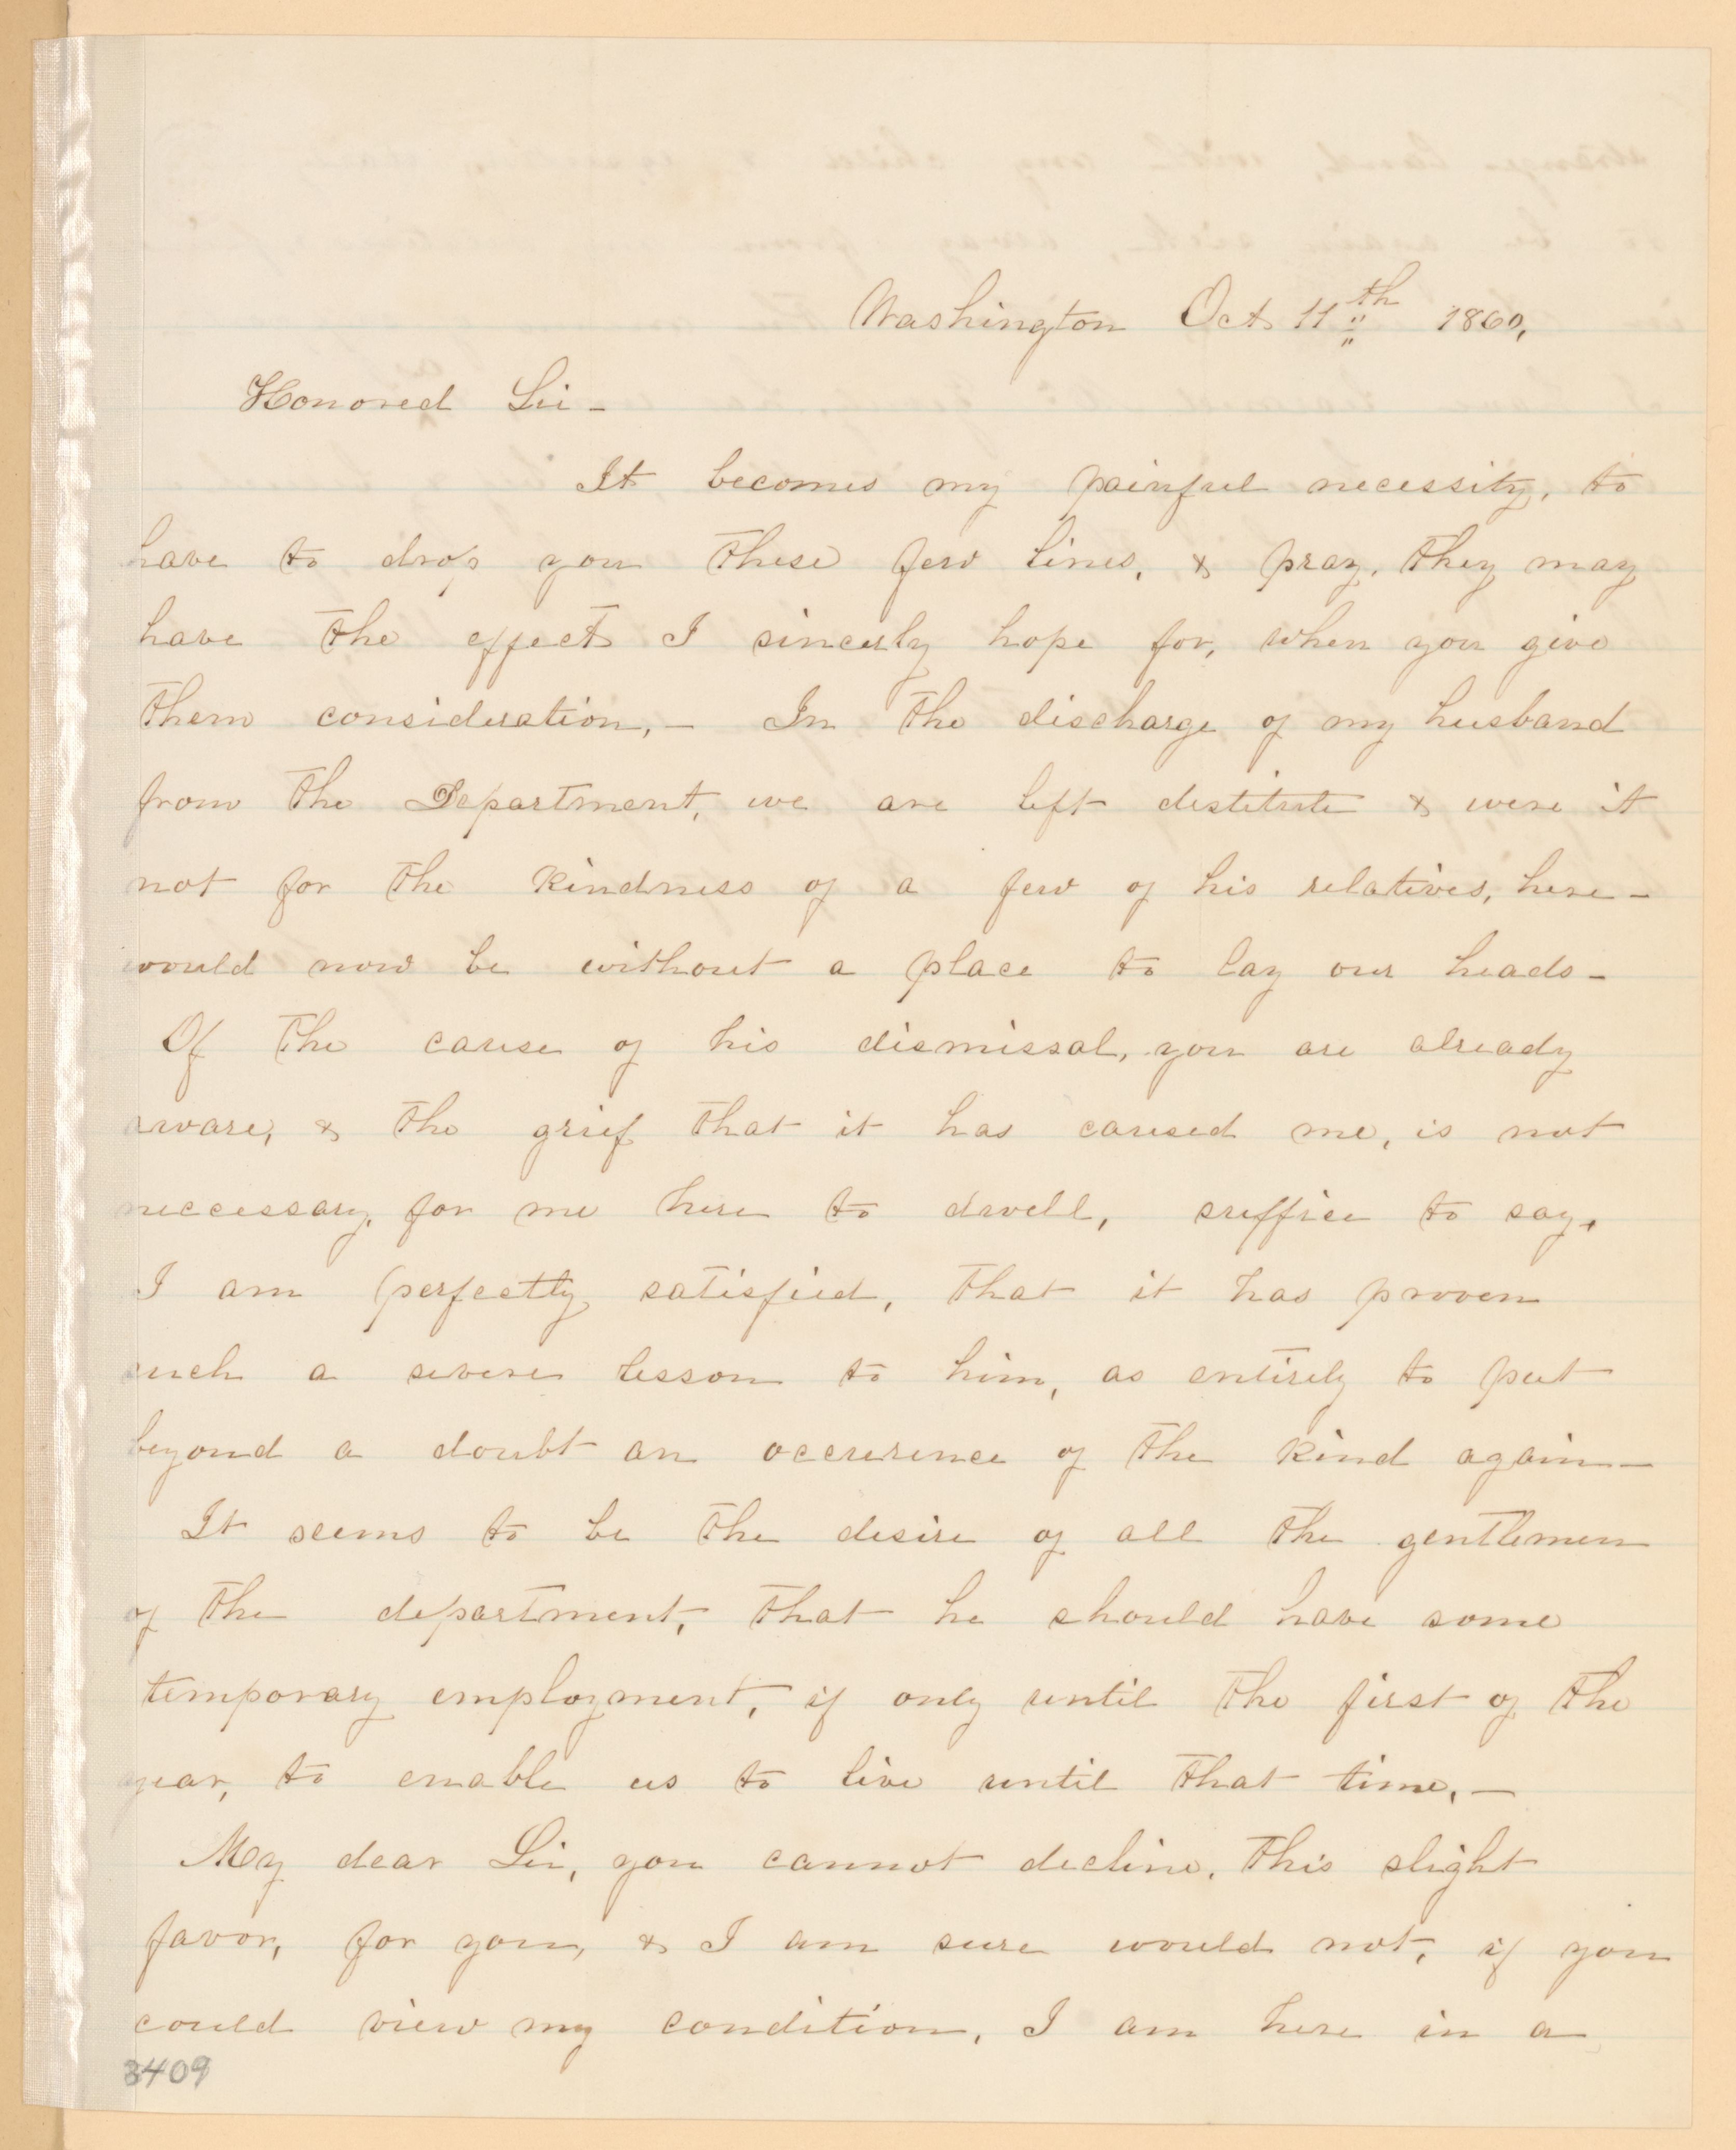 Washington Oct 11th 1860,
Honored Sir -
It becomes my painful necessity, to
have to drop you these few lines, & pray, they may
have the effect I sincerly hope for, when you give
them consideration, - In the discharge of my husband
from the Department, we are left destitute & were it
not for the kindness of a few of his relatives, here -
would now be without a place to lay our heads -
Of the cause of his dismissal, you are already
aware, & the grief that it has caused me, is not
neccessary, for me here to dwell, suffice to say,
I am perfectly satisfied, that it has proven
such a severe lesson to him, as entirely to put
beyond a doubt an occurence of the kind again -
It seems to be the desire of all the gentlemen
of the department, that he should have some
temporary employment, if only until the first of the
year, to enable us to live until that time, -
My dear Sir, you cannot decline, this slight
favor, for you, & I am sure would not, if you
could view my condition, I am here in a
3409